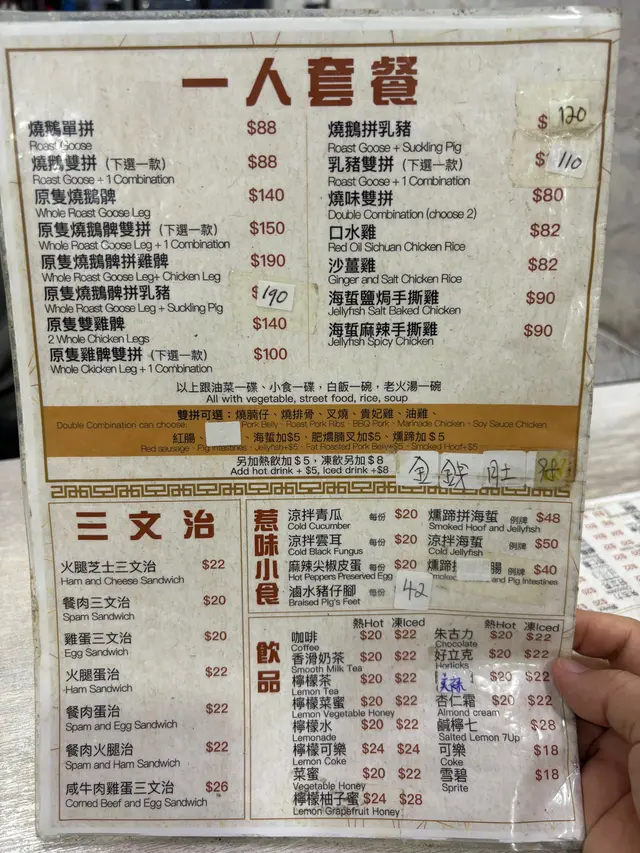 一人套餐
燒鵝單拼 $88
Roast Goose
燒鵝雙拼 (下選一款) $88
Roast Goose + 1 Combination
原隻燒鵝髀 $140
Whole Roast Goose Leg
原隻燒鵝髀雙拼 (下選一款) $150
Whole Roast Goose Leg + 1 Combination
原隻燒鵝髀拼雞髀 $190
Whole Roast Goose Leg+ Chicken Leg
原隻燒鵝髀拼乳豬 $190
Whole Roast Goose Leg + Suckling Pig
原隻雙雞髀 $140
2 Whole Chicken Legs
原隻雞髀雙拼 (下選一款) $100
Whole Ckicken Leg + 1 Combination
燒鵝拼乳豬 $120
Roast Goose + Suckling Pig
乳豬雙拼 (下選一款) $110
Roast Goose + 1 Combination
燒味雙拼 $80
Double Combination (choose 2)
口水雞 $82
Red Oil Sichuan Chicken Rice
沙薑雞 $82
Ginger and Salt Chicken Rice
海蜇鹽焗手撕雞 $90
Jellyfish Salt Baked Chicken
海蜇麻辣手撕雞 $90
Jellyfish Spicy Chicken
以上跟油菜一碟、小食一碟、白飯一碗，老火湯一碗
All with vegetable, street food, rice, soup
雙拼可選：燒腩仔、燒排骨、叉燒、貴妃雞、油雞、
Double Combination can choose Pork Belly、Roast Pork Ribs、BBQ Pork、Marinade Chicken、Soy Sauce Chicken
紅腸、 海蜇加$5、肥燶腩叉加$5、燻蹄加$5
Red sausage、Pig Intestines、Jellyfish+$5、Fat Roasted Pork Belly+$5、Smoked Hoof+$5
另加熱飲加$5，凍飲另加$8
Add hot drink + $5, Iced drink +$8
金錢肚
三文治
火腿芝士三文治 $22
Ham and Cheese Sandwich
餐肉三文治 $20
Spam Sandwich
雞蛋三文治 $20
Egg Sandwich
火腿蛋治 $22
Ham Sandwich
餐肉蛋治 $22
Spam and Egg Sandwich
餐肉火腿治 $22
Spam and Ham Sandwich
咸牛肉雞蛋三文治 $26
Corned Beef and Egg Sandwich
惹味小食
涼拌青瓜 每份 $20
Cold Cucumber
涼拌雲耳 每份 $20
Cold Black Fungus
麻辣尖椒皮蛋 每份 $20
Hot Peppers Preserved Egg
滷水豬仔腳 每份 42
Braised Pig's Feet
燻蹄拼海蜇 例牌 $48
Smoked Hoof and Jellyfish
涼拌海蜇 例牌 $50
Cold Jellyfish
燻蹄拼 腸 例牌 $40
Smoked and Pig Intestines
飲品
熱Hot 凍Iced
咖啡 $20 $22
Coffee
香滑奶茶 $20 $22
Smooth Milk Tea
檸檬茶 $20 $22
Lemon Tea
檸檬菜蜜 $20 $22
Lemon Vegetable Honey
檸檬水 $20 $22
Lemonade
檸檬可樂 $24 $24
Lemon Coke
菜蜜 $20 $22
Vegetable Honey
檸檬柚子蜜 $24 $28
Lemon Grapefruit Honey
熱Hot 凍Iced
朱古力 $20 $22
Chocolate
好立克 $20 $22
Horlicks
美祿 $20 $22
杏仁霜 $20 $22
Almond cream
鹹檸七 $28
Salted Lemon 7Up
可樂 $18
Coke
雪碧 $18
Sprite